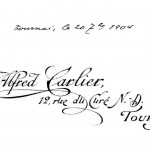 Tournai, le 20 7bre 1904
Alfred Carlier,
12, rue du Curé N.-D.
Tour